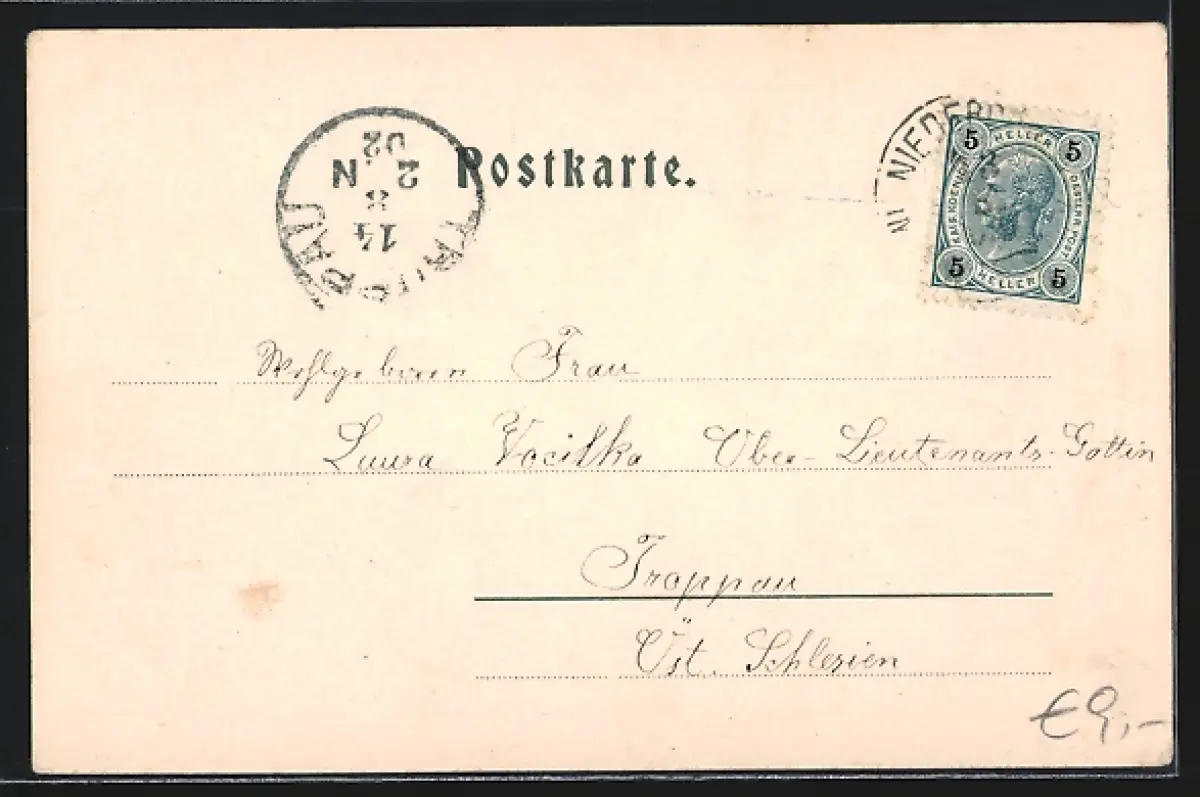 Postkarte.
TROPPAU
14
8
2 N
02
NIEDER
5 HELLER 5
KAIS. KOENIGL. OESTERR. POST
5 HELLER 5
Wohlgeboren Frau
Laura Vocilka Ober-Lieutenants-Gattin
Troppau
Öst. Schlesien
€ 9,-